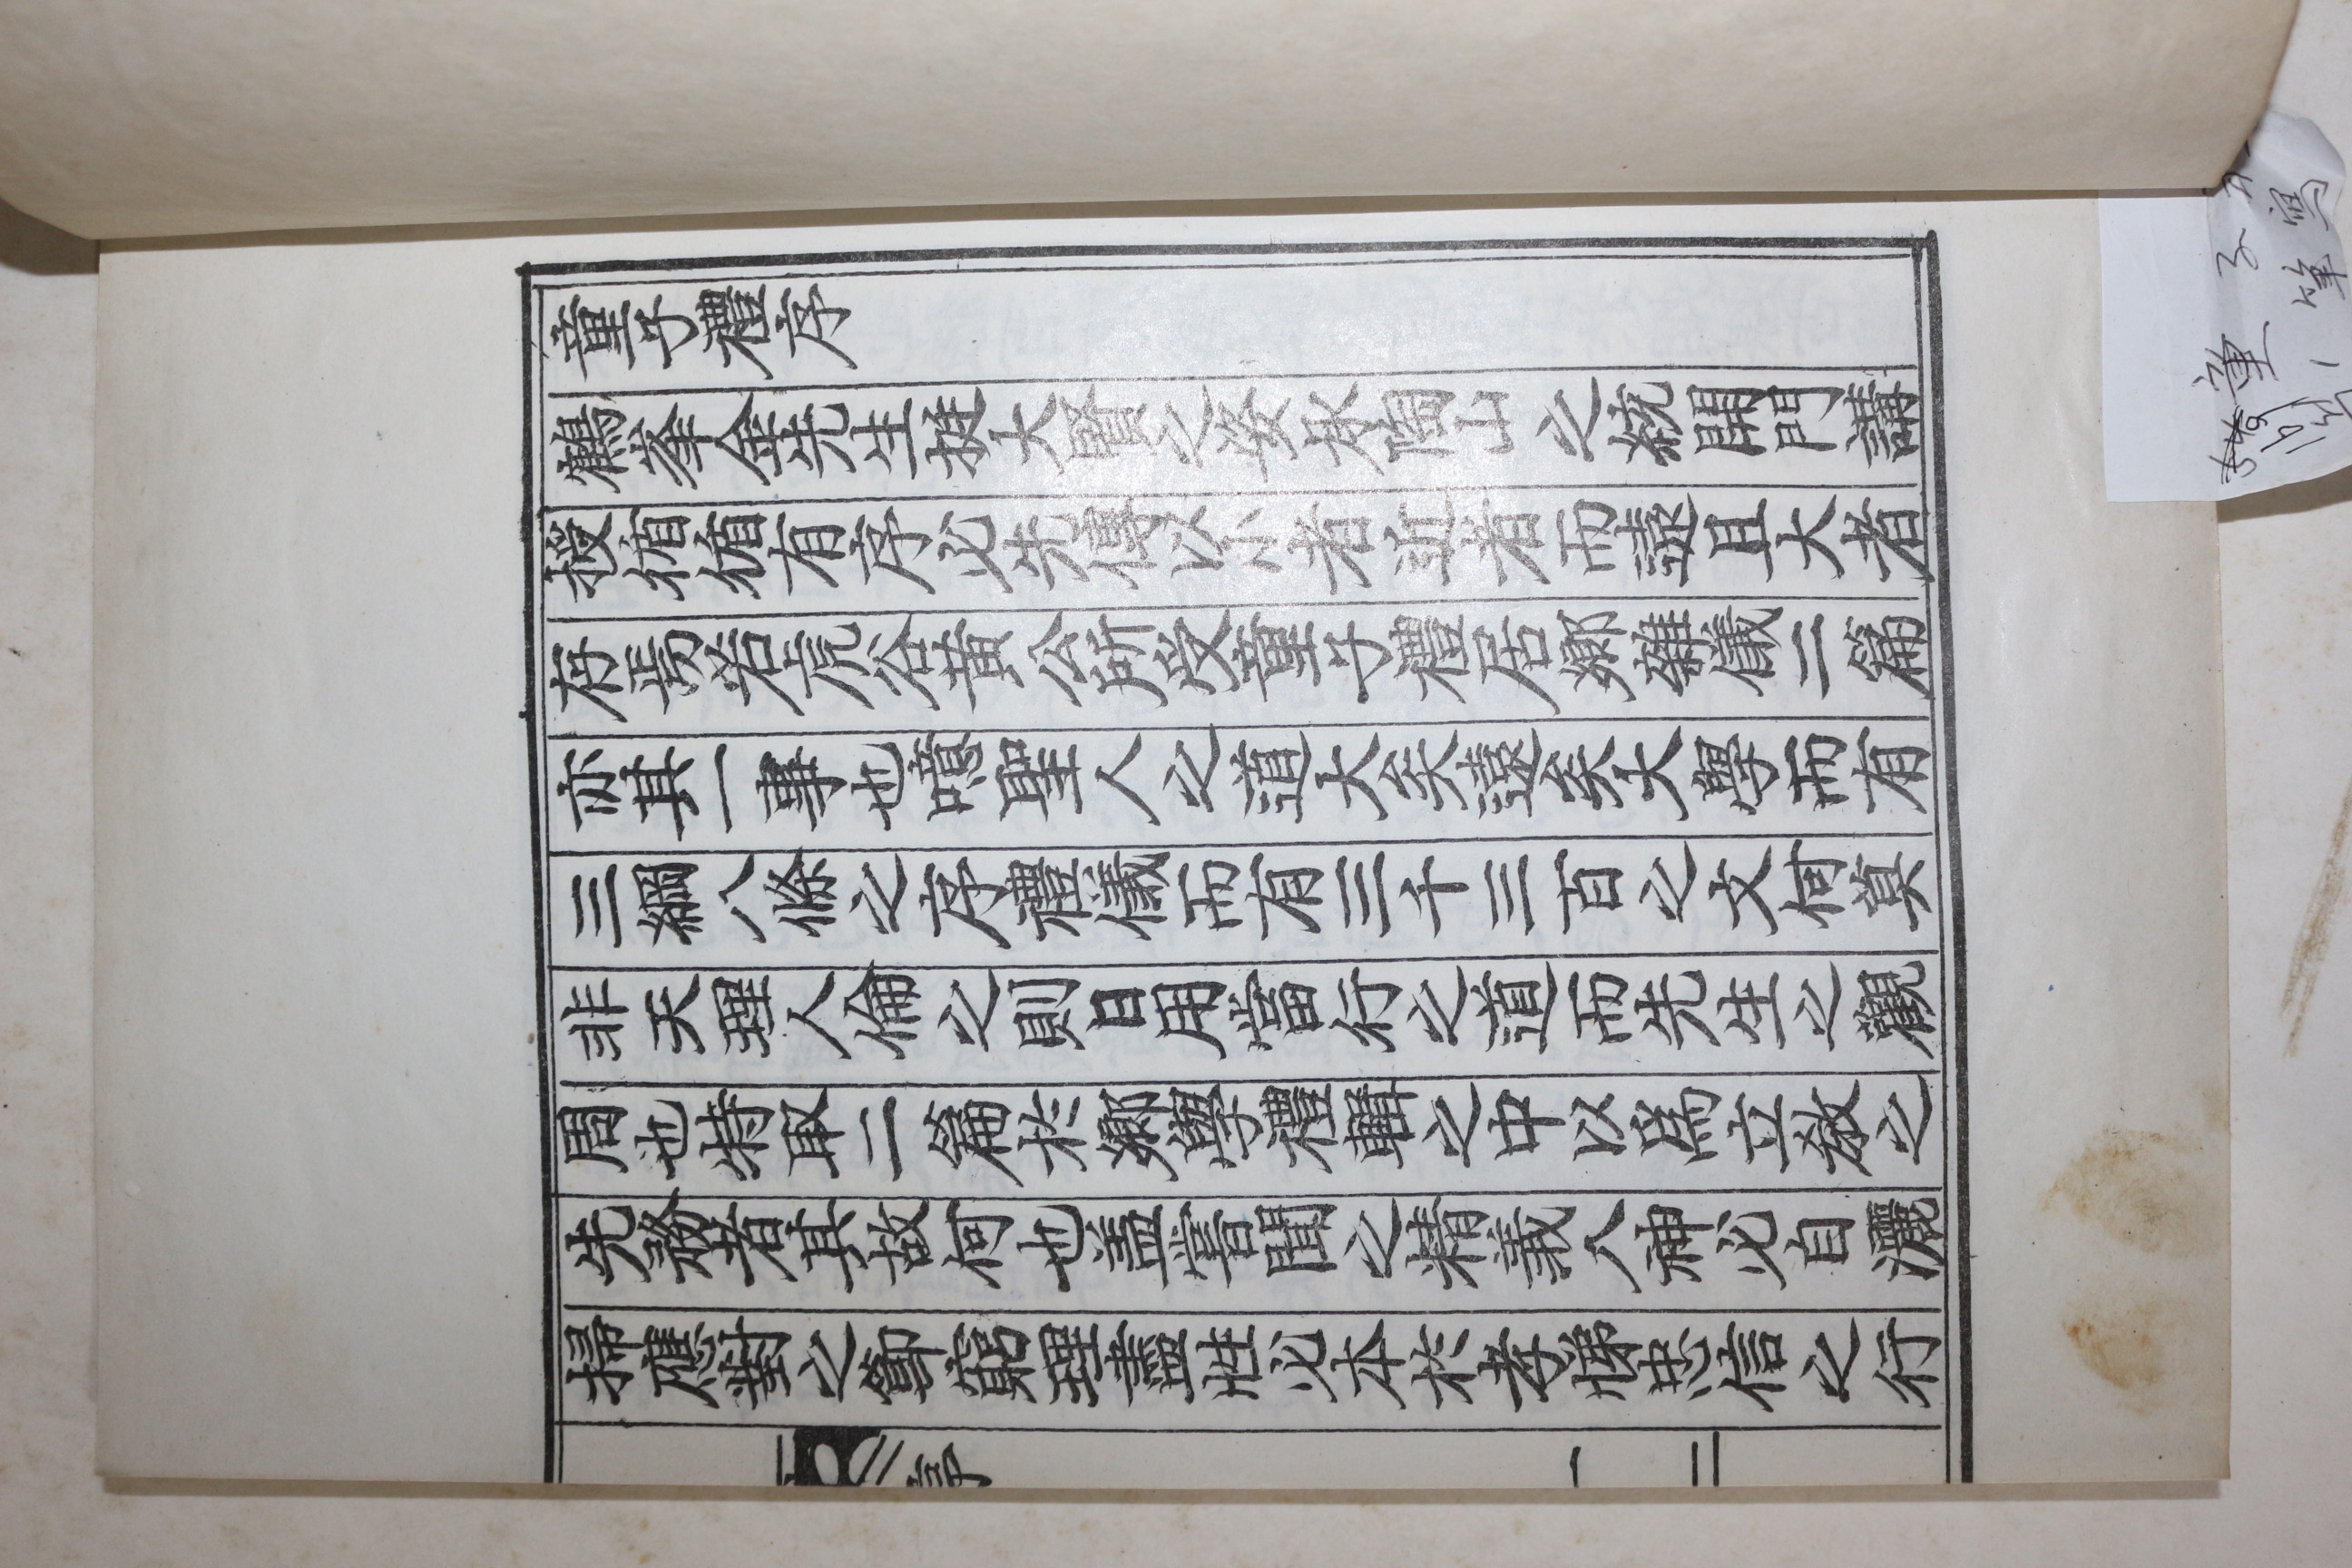 童子禮序
鶴峯金先生挺大賢之姿承陶山之統開門講
授循循有序必先傳以小者近者而遠且大者
存焉若冗谷黃公所受童子禮居鄕雜儀二篇
亦其一事也噫聖人之道大矣遠矣大學而有
三綱八條之序禮儀而有三千三百之文何莫
非天理人倫之則日用當行之道而先生之觀
周也特取二篇於鄕學禮輯之中以爲立敎之
先務者其故何也盖嘗聞之精義入神必自灑
掃應對之節窮理盡性必本於孝悌忠信之行
序 一